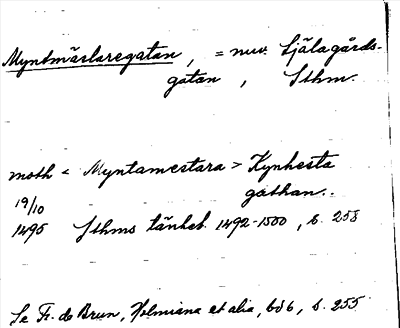 Myntmästaregatan, = nuv. Själagårds-
gatan, Sthm.
moth < Myntamestara > Kynhesta
gathan..
19/10
1495 Sthms tänkeb. 1492-1500, s. 258
Se Fr. de Brun, Holmiana et alia, bd 6, s. 255